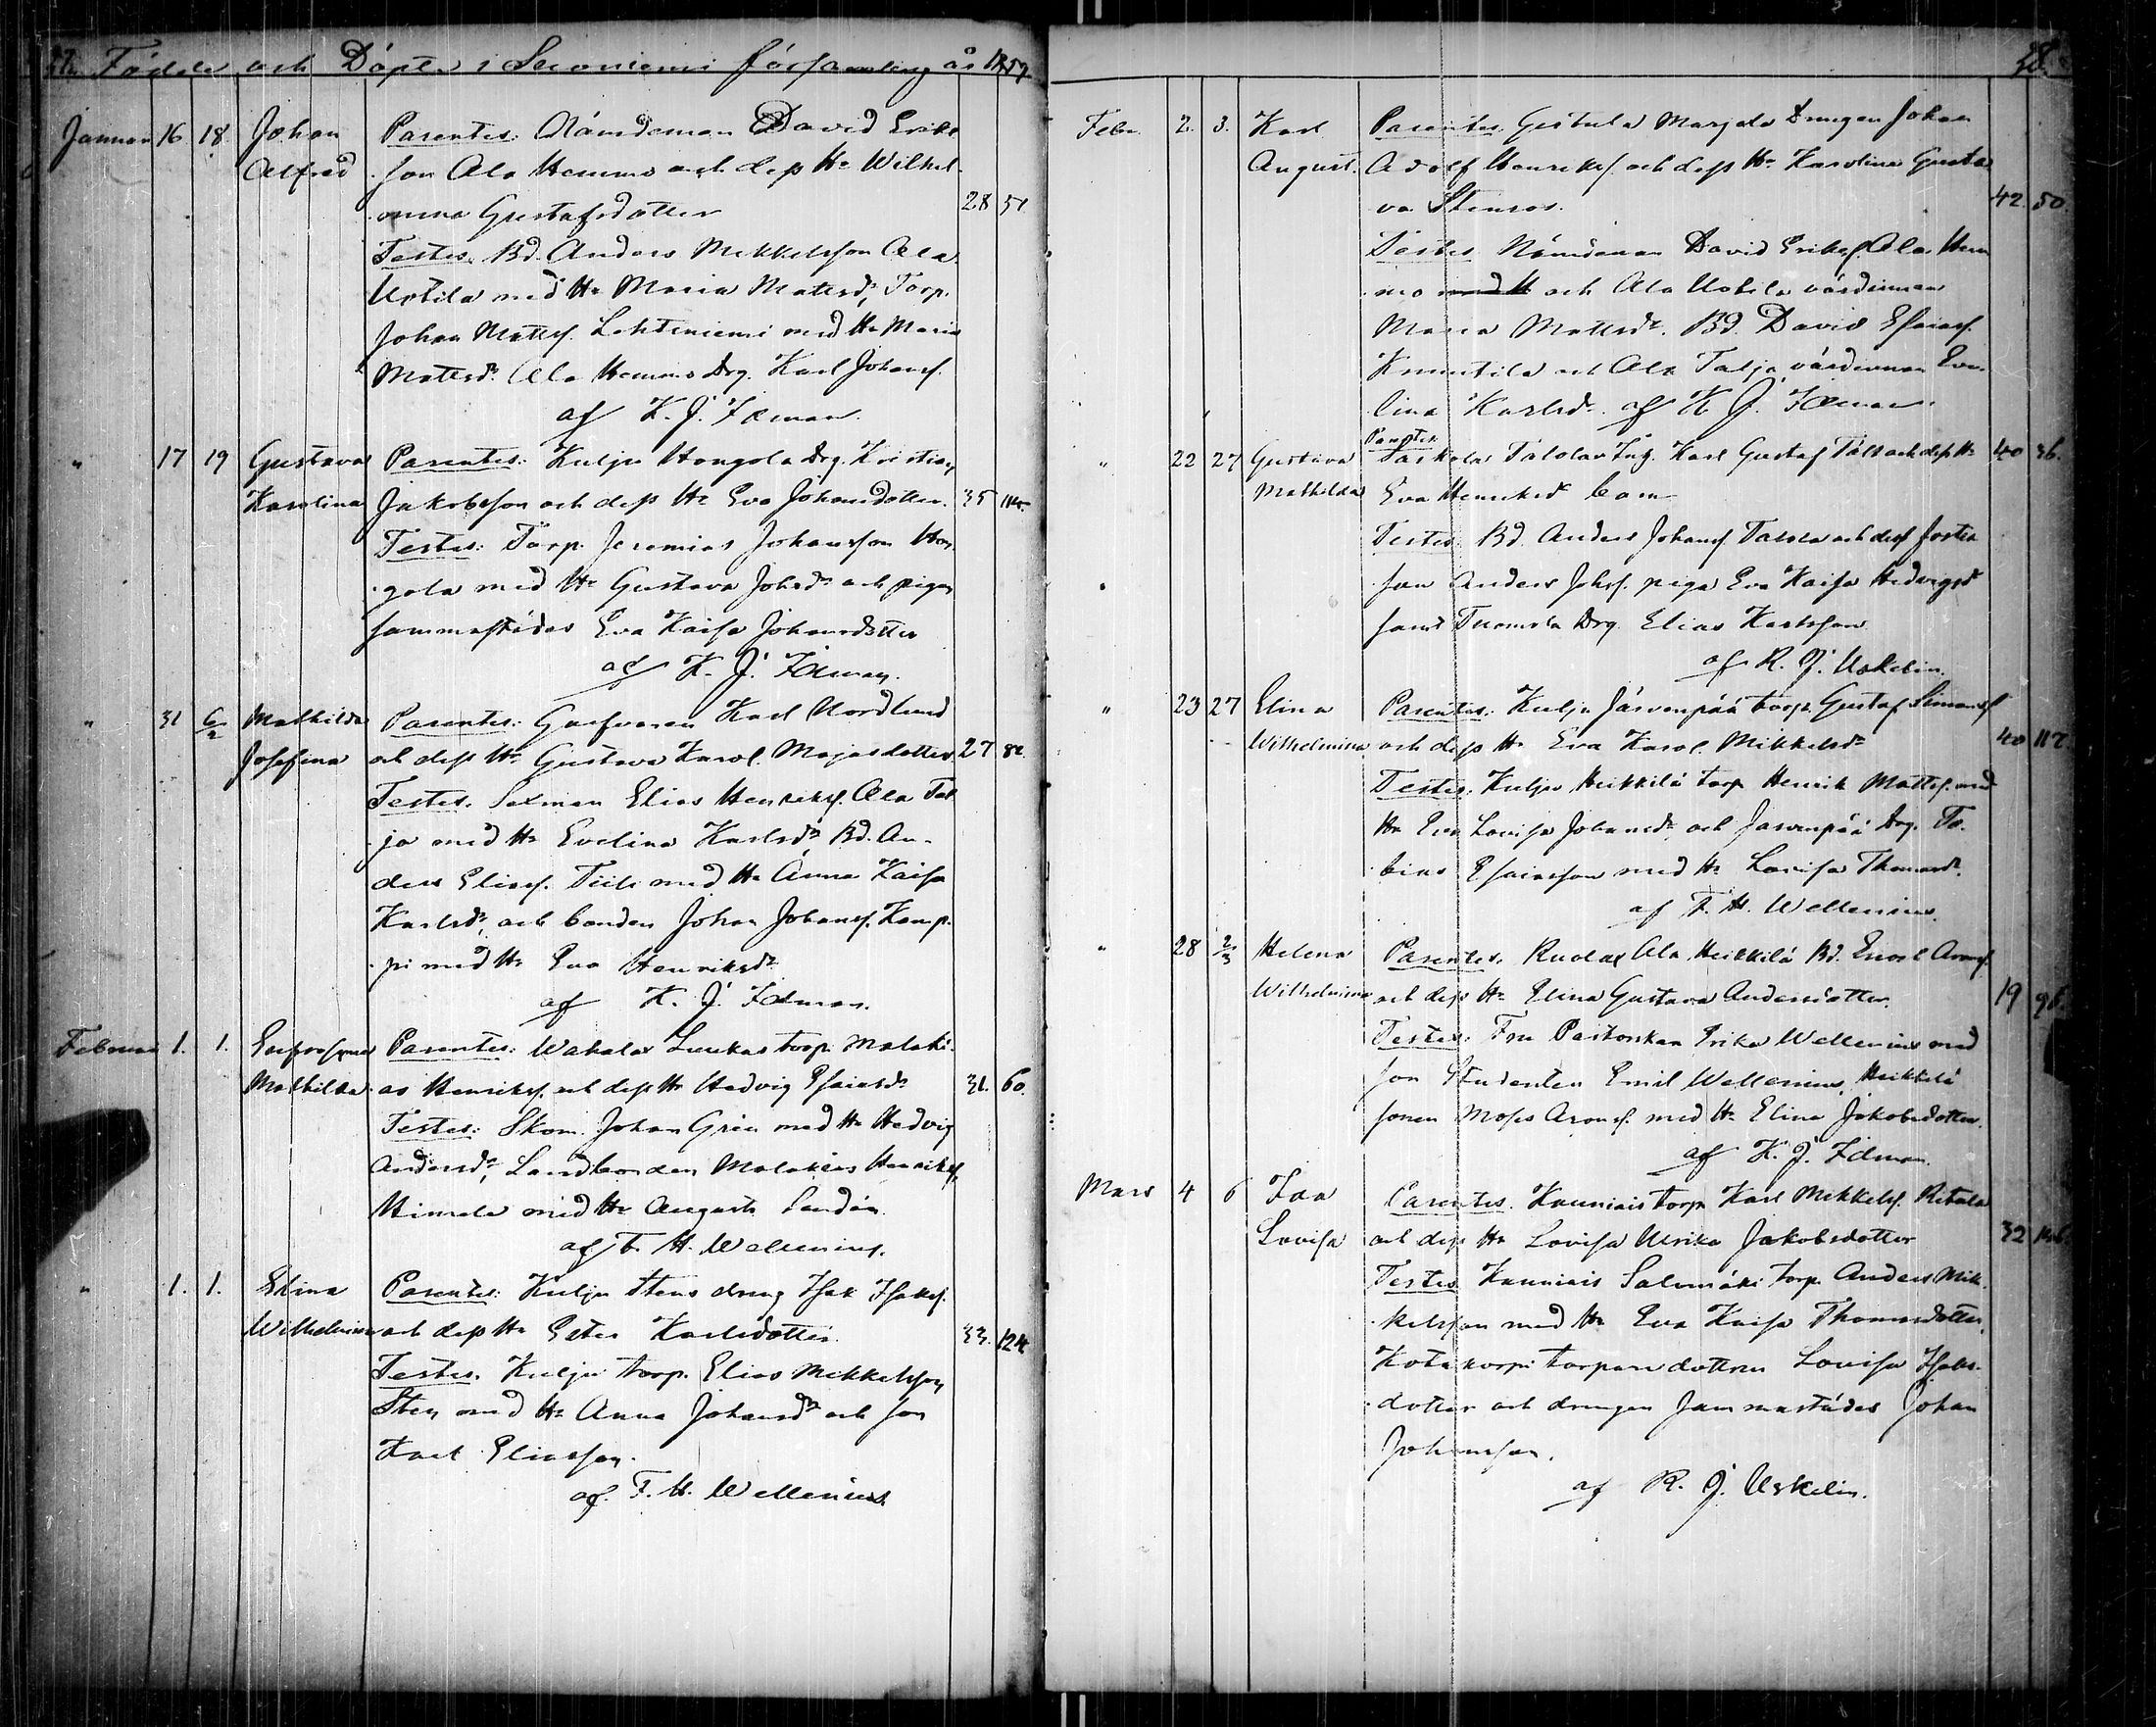 Födde och Döpte i Savoniemi församling år 1859
Januari 16 18 Johan Parentes: Nämndeman David Eriks
Alfred son Ala Hemmo och dess H. Wilhel
mina Gustafsdotter 28 51.
Testes. Bd. Anders Mikkelsson Ala
Uotila med H. Maria Mattsdr, Torp.
Johan Mattss. Lehtiniemi med H. Maria
Mattsdr. Ala Hemmo Drg. Karl Johanss.
af K. J. Idman.
" 17 19 Gustava Parentes: Kulju Hongola Drg. Kristian
Karolina Jakobsson och dess H. Eva Johansdotter. 35
Testes: Torp. Jeremias Johansson Hon
gola med H. Gustava Johsdr och pigan
sammastädes Eva Kaisa Johansdotter
af K. J. Idman.
" 31 6/2 Mathilda Parentes: Garfvaren Karl Nordlund
Josefina och dess H. Gustava Karol. Majasdotter 27 82
Testes. Sexman Elias Henrikss. Ala Tal
ja med H. Evelina Karlsdr, Bd. An-
ders Eliass. Tiili med H. Anna Kaisa
Karlsdr, och bonden Johan Johanss. Kamp
pi med H. Eva Henriksdr
af K. J. Idman.
Februari 1. 1. Eufrosyna Parentes: Wahalax Luukas torp. Malaki
Mathilda as Henrikss. och dess H. Hedvig Esaiasdr 31. 60.
Testes: Skom. Johan Grén med H. Hedvig
Andersdr, Landbonden Malakias Henrikss.
Himmola med H. Augusta Sandén.
af F. H. Wellenius.
" 1. 1. Elina Parentes: Kulju Stens dreng Isak Isakss.
Wilhelmina och dess H. Ester Karlsdotter. 33. 124
Testes. Kulju torp. Elias Mikkelsson
Sten med H. Anna Johansdr och son
Karl Eliasson.
af. F. H. Wellenius
Febr. 2. 3. Karl Parentes. Marjala Drengen Johan
August. Adolf Henrikss. och dess H. Karolina Gusta
va Stenros. 42. 50.
Testes. Nämndeman David Erikss. Ala Hem
mo med H och Ala Uotila värdinnan
Maria Mattsdr. Bd. David Esaiass.
Knuutila och Ala Talja värdinnan Eve
lina Karlsdr. af K. J. Idman.
Parentes
" 22 27 Gustava Karl Gustaf Tält och dess H. 40 36.
Mathilda Eva Henriksdr
Testes. Bd. Anders Johanss. och dess foster
son Anders Johss. piga Eva Kaisa Hedvigsdr
samt Tuomola Drg. Elias Karlsson
af R. J. Uskelin.
" 23 27 Elina Parentes. Kulju Järvenpää torp. Gustaf Simonss.
Wilhelmina och dess H. Eva Karol. Mikkelsdr 40 117.
Testes. Kulju Heikkilä torp Henrik Mattss. med
H. Eva Lovisa Johansdr och Järvenpää Drg. To
bias Esaiasson med H. Lovisa Thomasdr.
af F. H. Wellenius.
" 28 2/3 Helena Parentes. Ala Heikkilä Bd. Enok Aronss.
Wilhelmina och dess H. Elina Gustava Andersdotter. 19 96.
Testes: Fru Pastorskan Erika Wellenius med
son Studenten Emil Wellenius, Heikkilä
sonen Moses Aronss. med H. Elina Jakobsdotter.
af K. J. Idman.
Mars 4 6 Ida Parentes. Kauniais torp. Karl Mikkelss. Ritala
Lovisa och dess H. Lovisa Ulrika Jakobsdotter 32
Testes. Kauniais Salmimäki torp. Anders Mik
kelsson med H. Eva Kaisa Thomasdotter,
Kotakorpi torpare dottren Lovisa Isaks
dotter och drengen sammastädes Johan
Johansson.
af R. J. Uskelin.